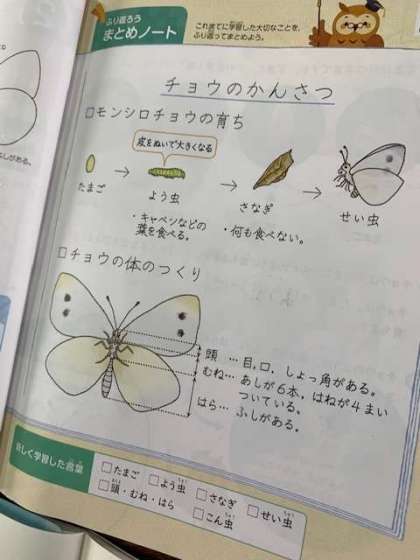 ふり返ろう
まとめノート
これまでに学習した大切なことを、
ふり返ってまとめよう。
チョウのかんさつ
□モンシロチョウの育ち
皮をぬいで大きくなる
たまご
→
よう虫
→
さなぎ
→
せい虫
・キャベツなどの
葉を食べる。
・何も食べない。
□チョウの体のつくり
頭…目,口,しょっ角がある。
むね…あしが6本,はねが4まい
ついている。
はら…ふしがある。
しく学習した言葉
□たまご
□よう虫
□さなぎ
□せい虫
□頭・むね・はら
□こん虫
がある。